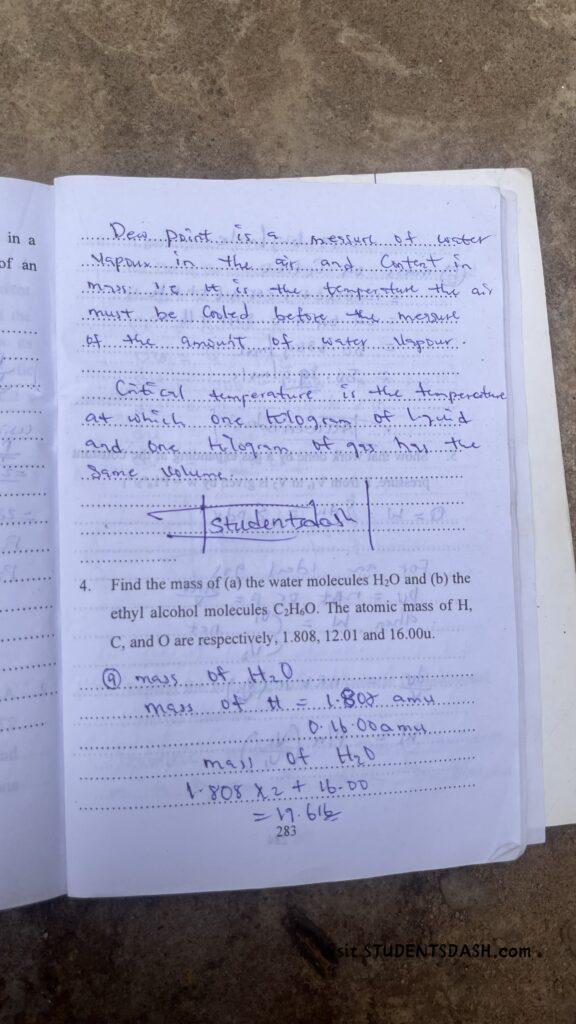 in a
of an
Dew point is a messure of water
Vapour in the air and Content in
mass i.e it is the temperature the air
must be Cooled before the messure
of the amount of water Vapour.
Critical temperature is the temperature
at which one kilogram of liquid
and one kilogram of gas has the
Same Volume.
Studentsdash
4. Find the mass of (a) the water molecules H₂O and (b) the
ethyl alcohol molecules C₂H₆O. The atomic mass of H,
C, and O are respectively, 1.808, 12.01 and 16.00u.
(a) mass of H₂O
mass of H = 1.808 amu
0.16.00amu
mass of H₂O
1.808 x 2 + 16.00
= 19.616
283
STUDENTSDASH.com